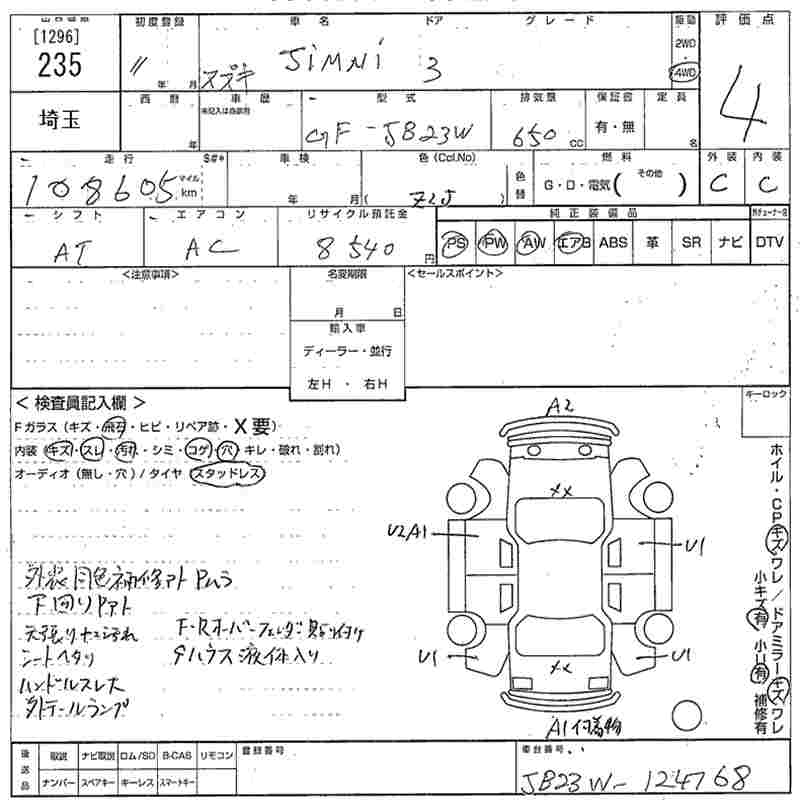 [1296]
235
埼玉
初度登録
11
年 月
車名
ドア
グレード
スズキ JIMNI 3
駆動
2WD
4WD
評価点
4
西暦
年
車歴
未記入は自家用
型式
GF-JB23W
排気量
650 cc
保証書
有・無
定員
名
走行
S#*
108605
マイル
km
車検
年 月
色(Ccl.No)
( Z2J )
色替
燃料
G・D・電気( その他 )
外装
C
内装
C
シフト
AT
エアコン
AC
リサイクル預託金
8540 円
純正装備品
PS PW AW エアB ABS 革 SR ナビ DTV
<注意事項>
名変期限
月 日
輸入車
ディーラー・並行
左H ・ 右H
<セールスポイント>
<検査員記入欄>
Fガラス(キズ・飛石・ヒビ・リペア跡・X要)
内装(キズ・スレ・汚れ・シミ・コゲ・穴・キレ・破れ・割れ)
オーディオ(無し・穴)/タイヤ(スタッドレス)
外装同色補修アト Pムラ
下回りPアト
天張りキズ汚れ
シートヘタリ
ハンドルスレ大
外テールランプ
F・Rオーバーフェンダー貼り付け
タハウス液体入り
A2
XX
U2A1
U1
U1
U1
XX
A1 付着物
キーロック
ホイル・CPキズワレ/ドアミラーキズワレ
小キズ有 小U有 補修有
後送品
取説 ナビ取説 ロム/SD B-CAS リモコン
ナンバー スペアキー キーレス スマートキー
登録番号
車台番号
JB23W-124768